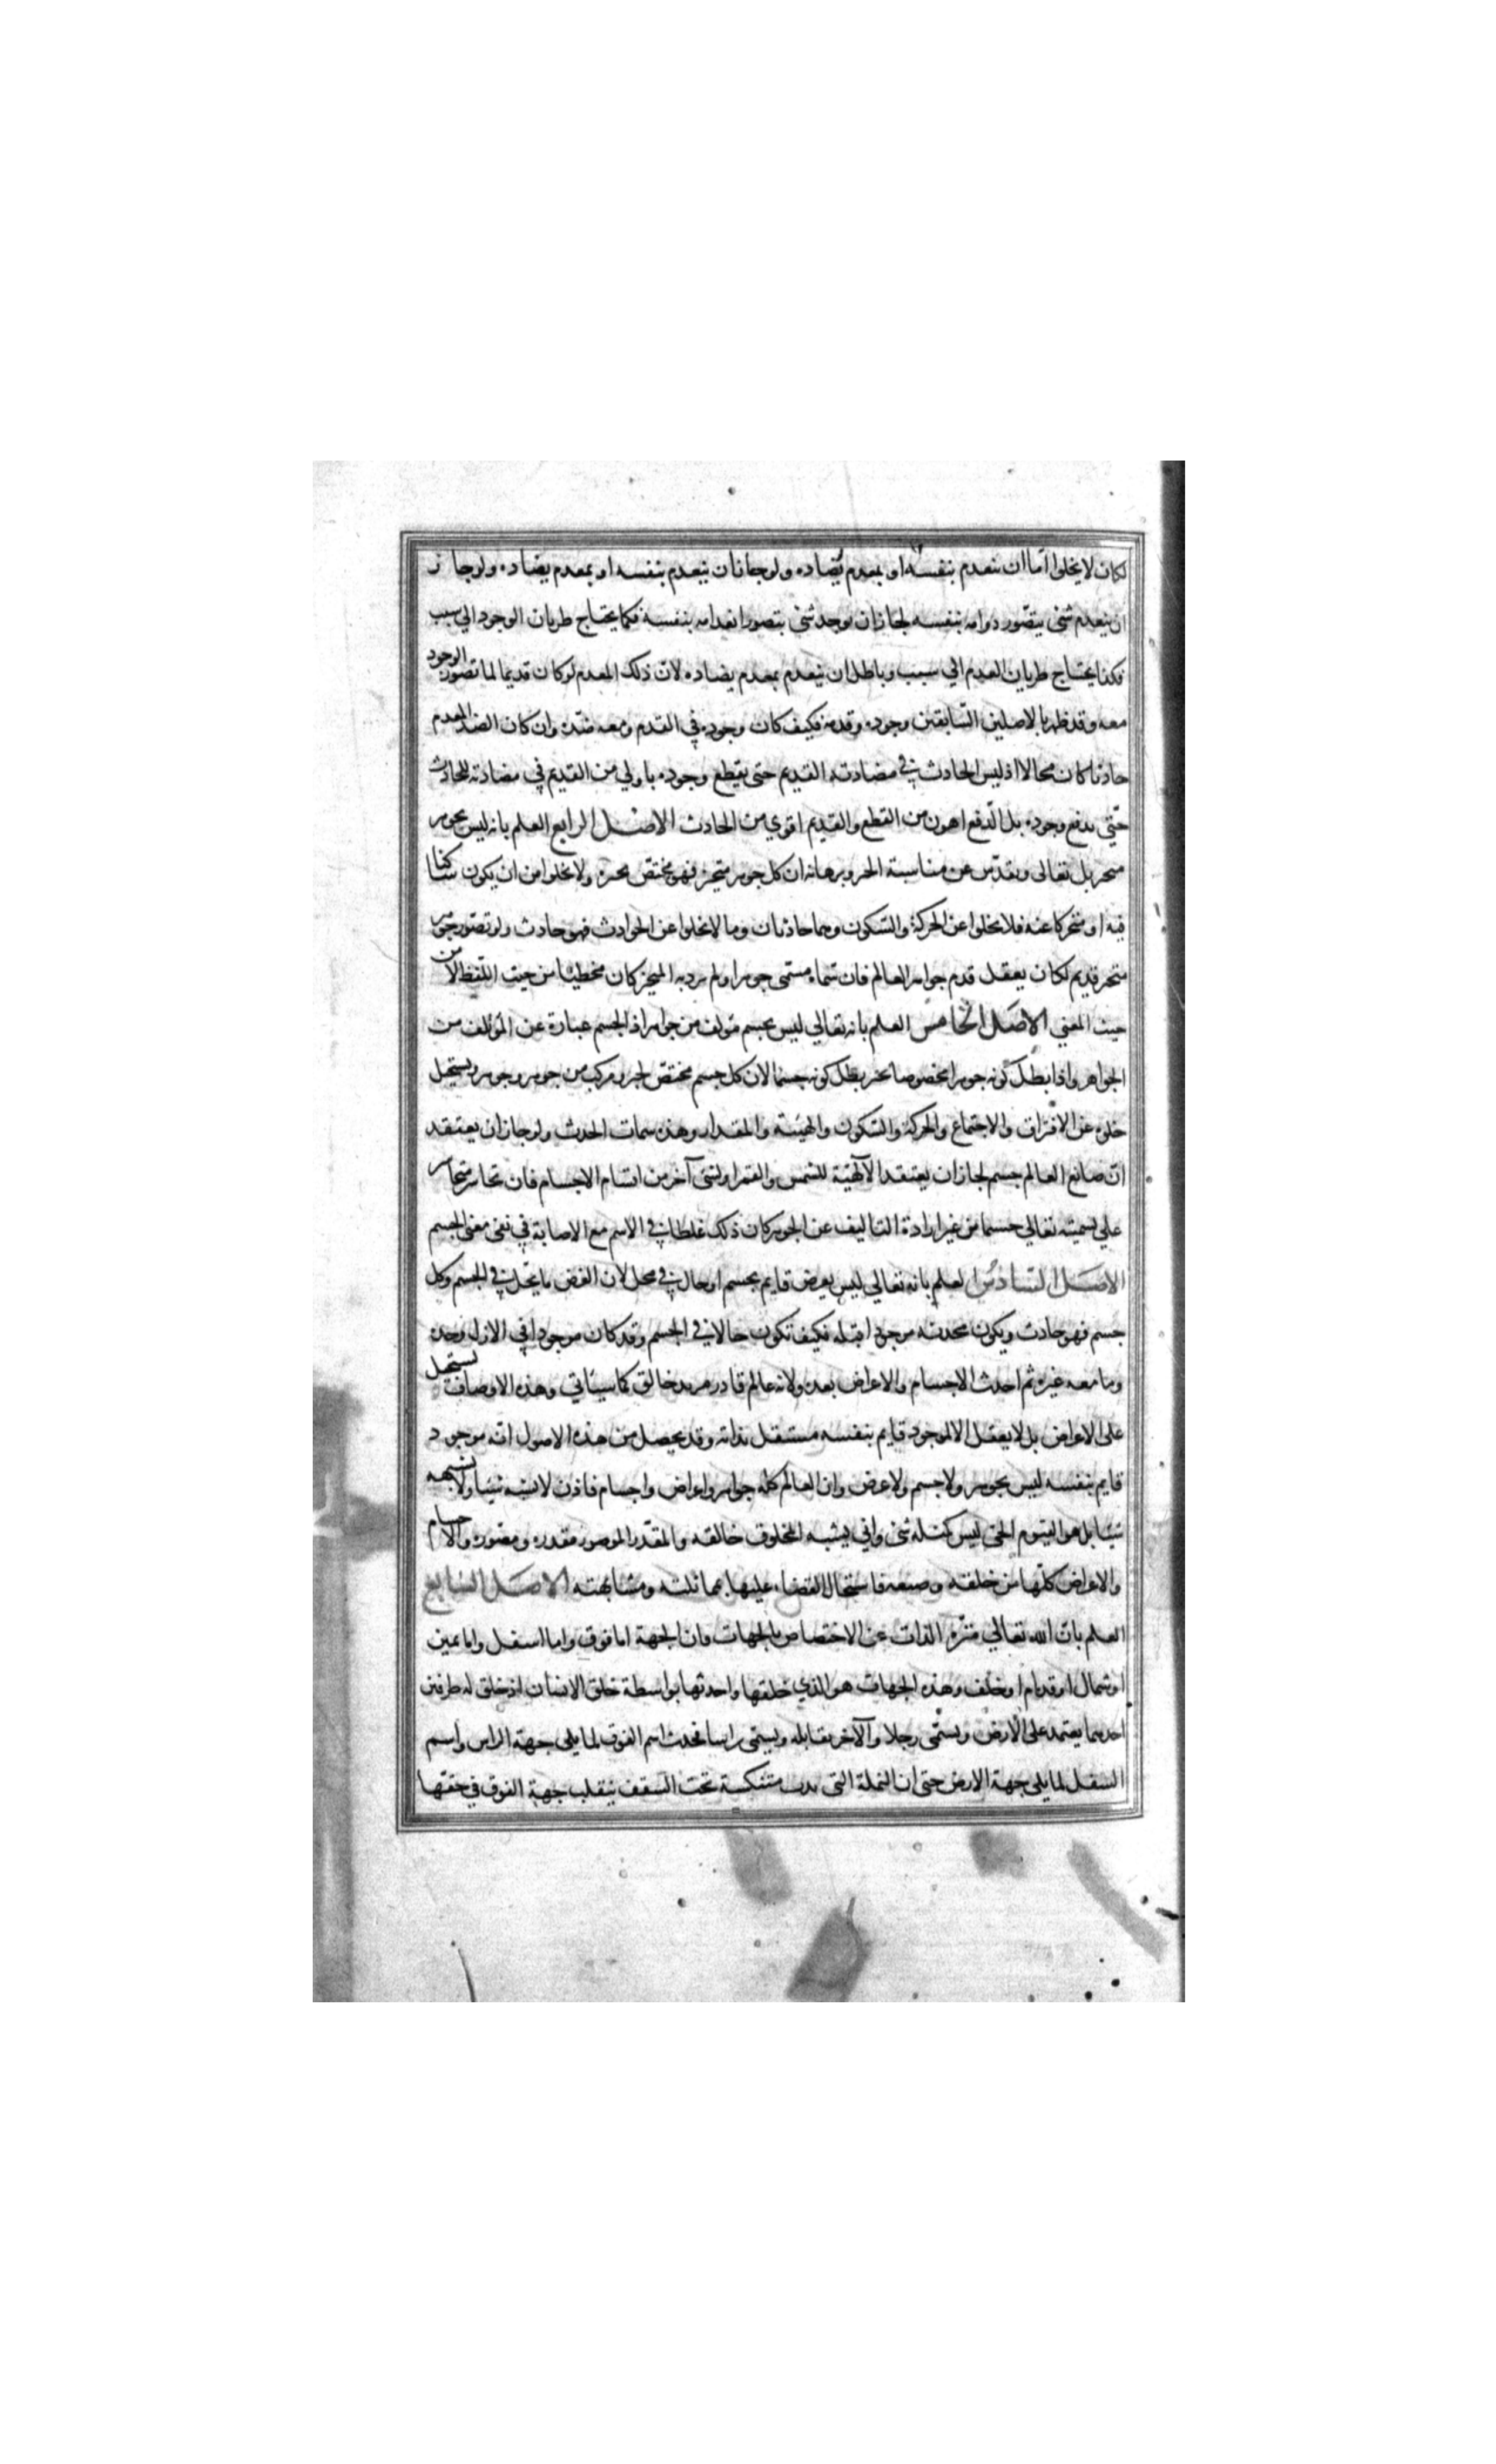 لكان لا يخلوا اما ان ينعدم بنفسه او بمعدم يضاده ولو جاز ان ينعدم بنفسه او بمعدم يضاده ولو جاز
ان ينعدم شئ يتصور دوامه بنفسه لجاز ان يوجد شئ يتصور انعدامه بنفسه فكما يحتاج طريان الوجود الي سبب
فكذا يحتاج طريان العدم الي سبب وباطل ان ينعدم بمعدم يضاده لان ذلك المعدم لو كان قديما لما تصور الوجود
معه وقد ظهر بالاصلين السابقين وجوده وقدمه فكيف كان وجوده في القدم ومعه ضده وان كان الضد المعدم
حادثا كان محالا اذ ليس الحادث في مضادته القديم حتى يقطع وجوده باولي من القديم في مضادته للحادث
حتى يدفع وجوده بل الدفع اهون من القطع والقديم اقوي من الحادث الاصل الرابع العلم بانه ليس بجوهر
متحيز بل تعالى وتقدس عن مناسبة الحيز وبرهانه ان كل جوهر متحيز فهو مختص بحيزه ولا يخلوا من ان يكون ساكنا
فيه او متحركا عنه فلا يخلوا عن الحركة والسكون وهما حادثان وما لا يخلوا عن الحوادث فهو حادث ولو تصور جوهر
متحيز قديم لكان يعقل قدم جواهر العالم فان سماه مسمى جوهرا ولم يرد به المتحيز كان مخطيئا من حيث اللفظ لا من
حيث المعني الاصل الخامس العلم بانه تعالي ليس بجسم مؤلف من جواهر اذ الجسم عبارة عن المؤلف من
الجواهر واذا بطل كونه جوهرا مخصوصا بحيز بطل كونه جسما لان كل جسم مختص بحيز ومركب من جوهر وجوهر ويستحيل
خلوه عن الافتراق والاجتماع والحركة والسكون والهيئة والمقدار وهذه سمات الحدث ولو جاز ان يعتقد
ان صانع العالم جسم لجاز ان يعتقد الآلهية للشمس والقمر او لشئ آخر من اقسام الاجسام فان تجاسر متجاسر
علي تسميته تعالي جسما من غير ارادة التاليف عن الجوهر كان ذلك غلطا في الاسم مع الاصابة في نفى معنى الجسم
الاصل السادس العلم بانه تعالي ليس بعرض قايم بجسم او حال في محل لان العرض ما يحل في الجسم وكل
جسم فهو حادث ويكون محدثه موجودا قبله فكيف تكون حالا في الجسم وقد كان موجودا في الازل وحده
وما معه غيره ثم احدث الاجسام والاعراض بعده ولانه عالم قادر مريد خالق كما سيئاتي وهذه الاوصاف تستحيل
على الاعراض بل لا يعقل الا لموجود قايم بنفسه مستقل بذاته وقد يحصل من هذه الاصول انه موجود
قايم بنفسه ليس بجوهر ولا جسم ولا عرض وان العالم كله جواهر واعراض واجسام فاذن لا يشبه شيئا ولا يشبهه
شيئا بل هو القيوم الحي ليس كمثله شئ واني يشبه المخلوق خالقه والمقدر المصور مقدره ومصوره والاجسام
والاعراض كلها من خلقه وصنعه فاستحال القضاء عليها بمماثلته ومشابهته الاصل السابع
العلم بان الله تعالي منزه الذات عن الاختصاص بالجهات وان الجهة اما فوق واما اسفل واما يمين
او شمال او قدام او خلف وهذه الجهات هو الذي خلقها واحدثها بواسطة خلق الانسان اذ خلق له طرفين
احدهما يعتمد على الارض ويسمى رجلا والآخر يقابله ويسمى راسا فحدث اسم الفوق لما يلي جهة الراس واسم
السفل لما يلي جهة الارض حتى ان النملة التى تدب متنكسة تحت السقف ينقلب جهة الفوق في حقها